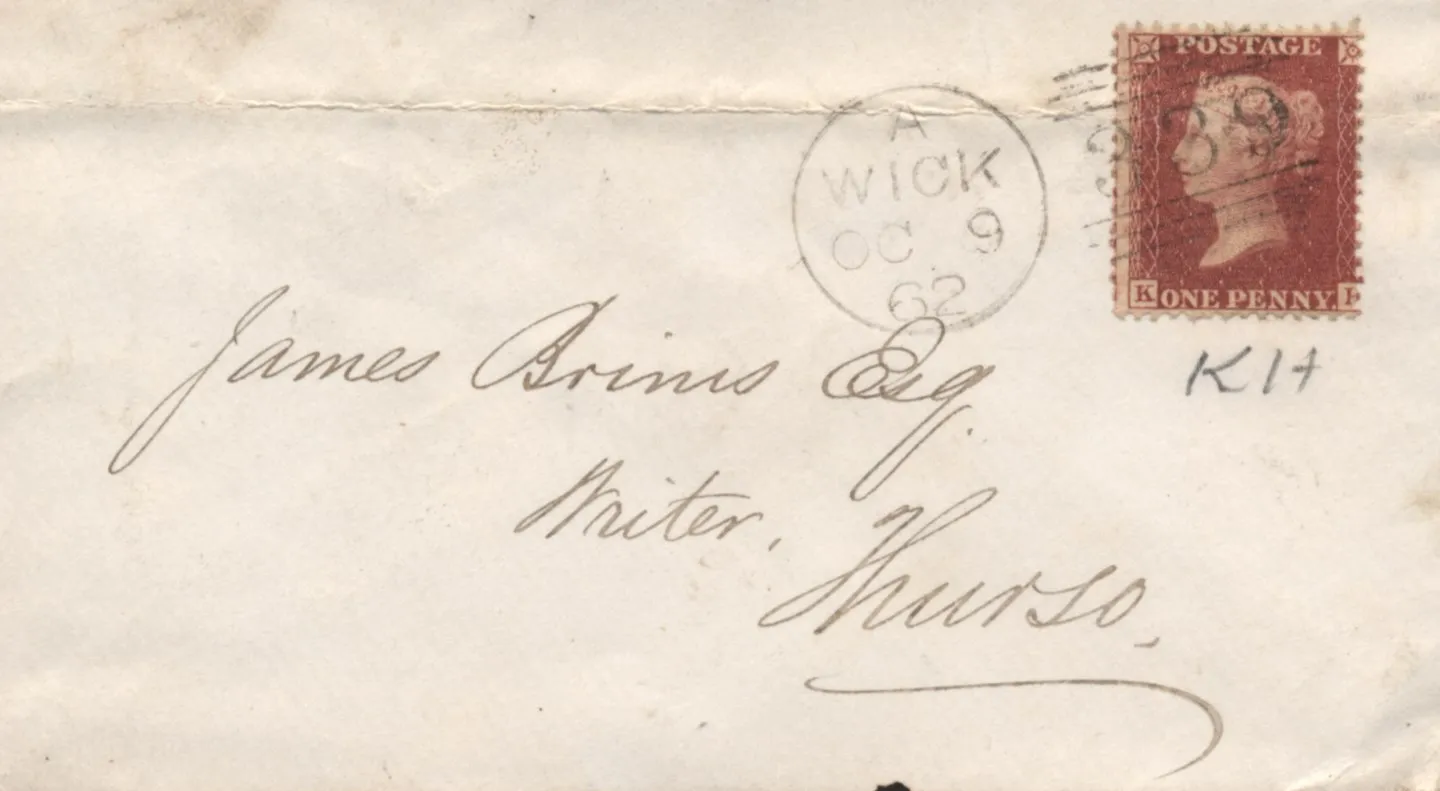 POSTAGE
339
A
WICK
OC 9
62
K ONE PENNY.
KH
James Brims Esq.
Writer,
Thurso,